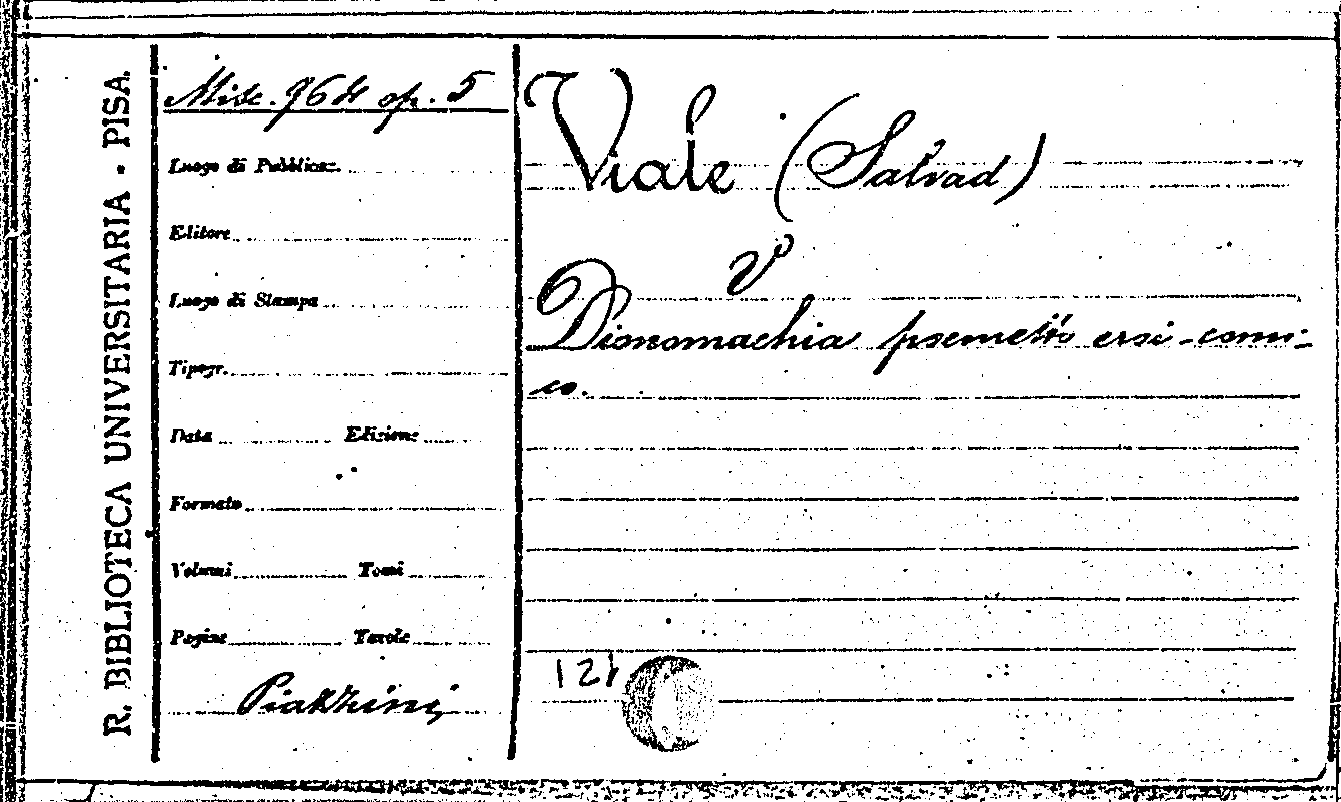 R. BIBLIOTECA UNIVERSITARIA - PISA
Misc. 964 op. 5
Luogo di Pubblicaz.
Editore
Luogo di Stampa
Tipogr.
Data Edizione
Formato
Volumi Tomi
Pagine Tavole
Piazzini
Viale (Salvad)
Dionomachia poemetto eroi-comi-
co.
121